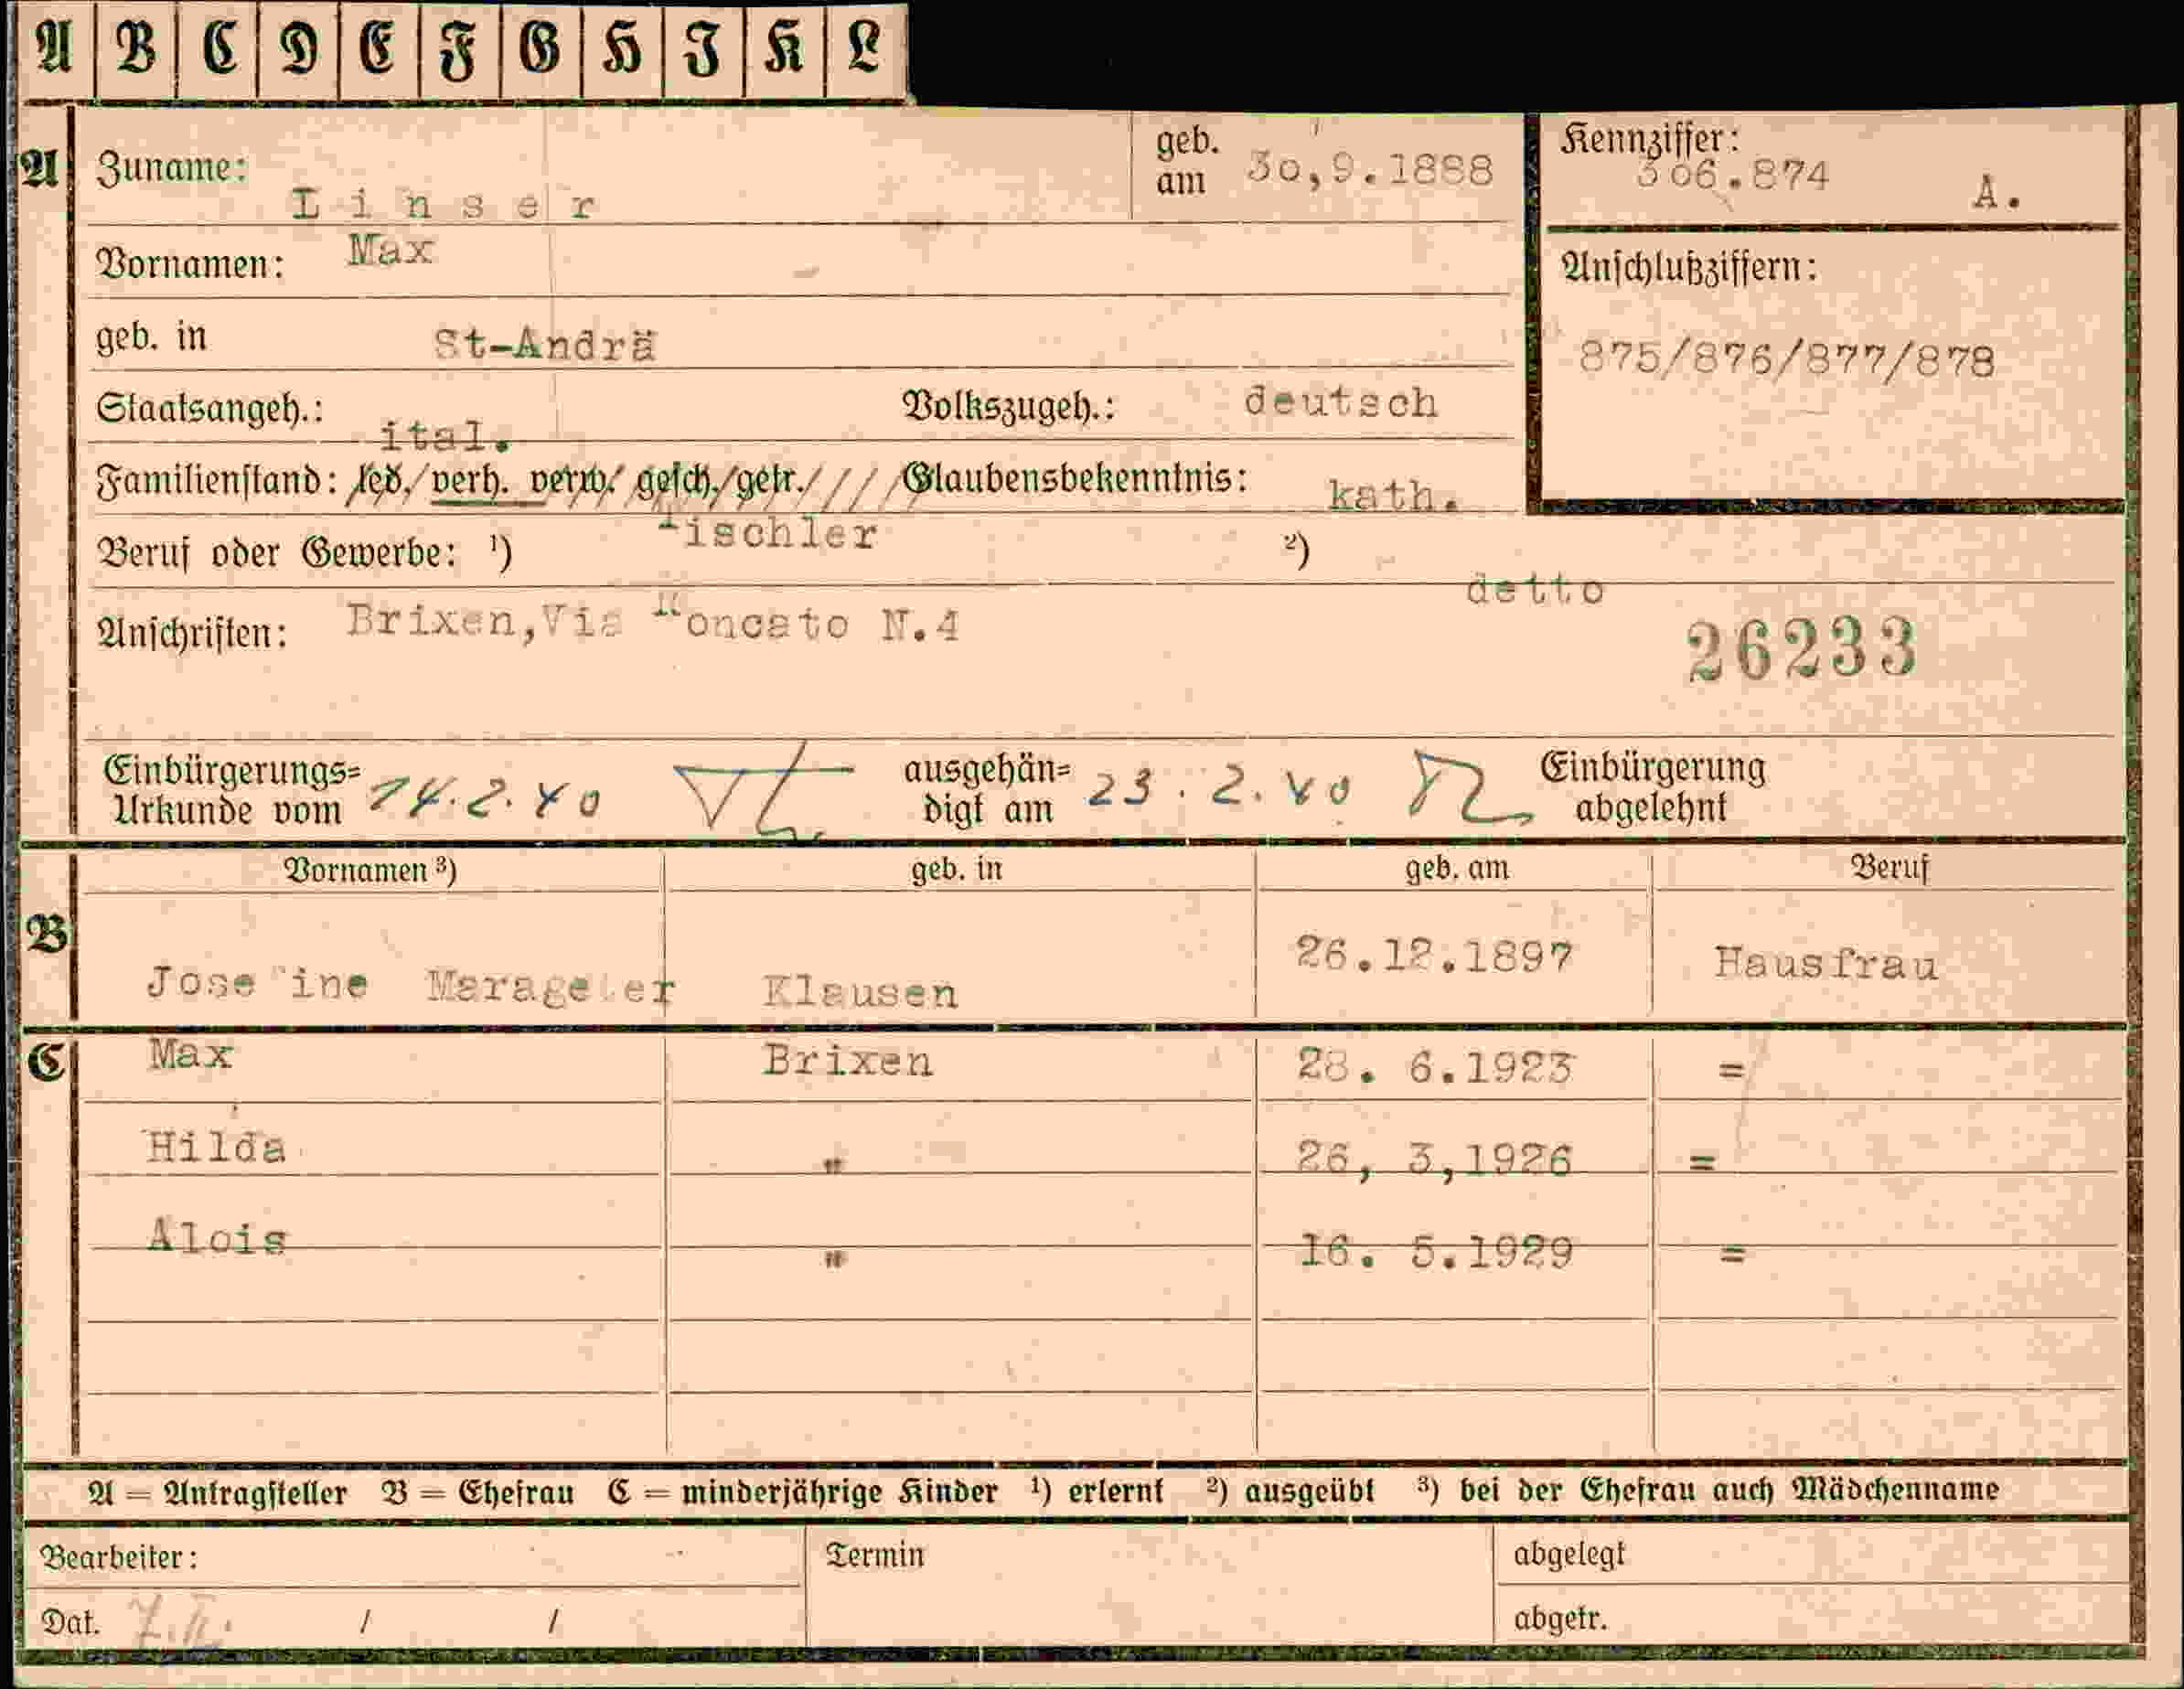 A B C D E F G H I K L
A Zuname: Linser geb. am 30,9.1888 Kennziffer: 306.874 A.
Vornamen: Max
Anschlußziffern:
geb. in St-Andrä
875/876/877/878
Staatsangeh.: ital. Volkszugeh.: deutsch
Familienstand: led./verh. verw./ gesch./getr./ / / / Glaubensbekenntnis: kath.
Beruf oder Gewerbe: ¹) Tischler ²) detto
Anschriften: Brixen,Via N.4
26233
Einbürgerungs=
Urkunde vom 14.2.40 ausgehän=
digt am 23.2.40 Einbürgerung
abgelehnt
Vornamen ³) geb. in geb. am Beruf
B Josefine Klausen 26.12.1897 Hausfrau
C Max Brixen 28. 6.1923 =
Hilda " 26, 3,1926 =
Alois " 16. 5.1929 =
A = Antragsteller B = Ehefrau C = minderjährige Kinder ¹) erlernt ²) ausgeübt ³) bei der Ehefrau auch Mädchenname
Bearbeiter: Termin abgelegt
Dat. / / abgetr.